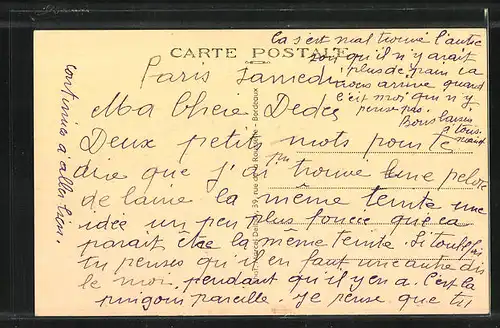 CARTE POSTALE
Paris Samedi
Ma Chère Dédée
Deux petits mots pour te
dire que j'ai pu trouvé une pelote
de laine la même teinte une
idée un peu plus foncée que ca
parait être la même teinte. Si toutefois
tu penses qu'il en faut une autre dis
le moi pendant qu'il y en a. C'est la
pareille. Je pense que tu
continues à aller bien.
ça s'est mal trouvé l'autre
soir qu'il n'y avait
plus de pain ça
nous arrive quand
c'est moi qui n'y
pense pas.
Bons baisers
tous
39, rue de la Rousselle - Bordeaux